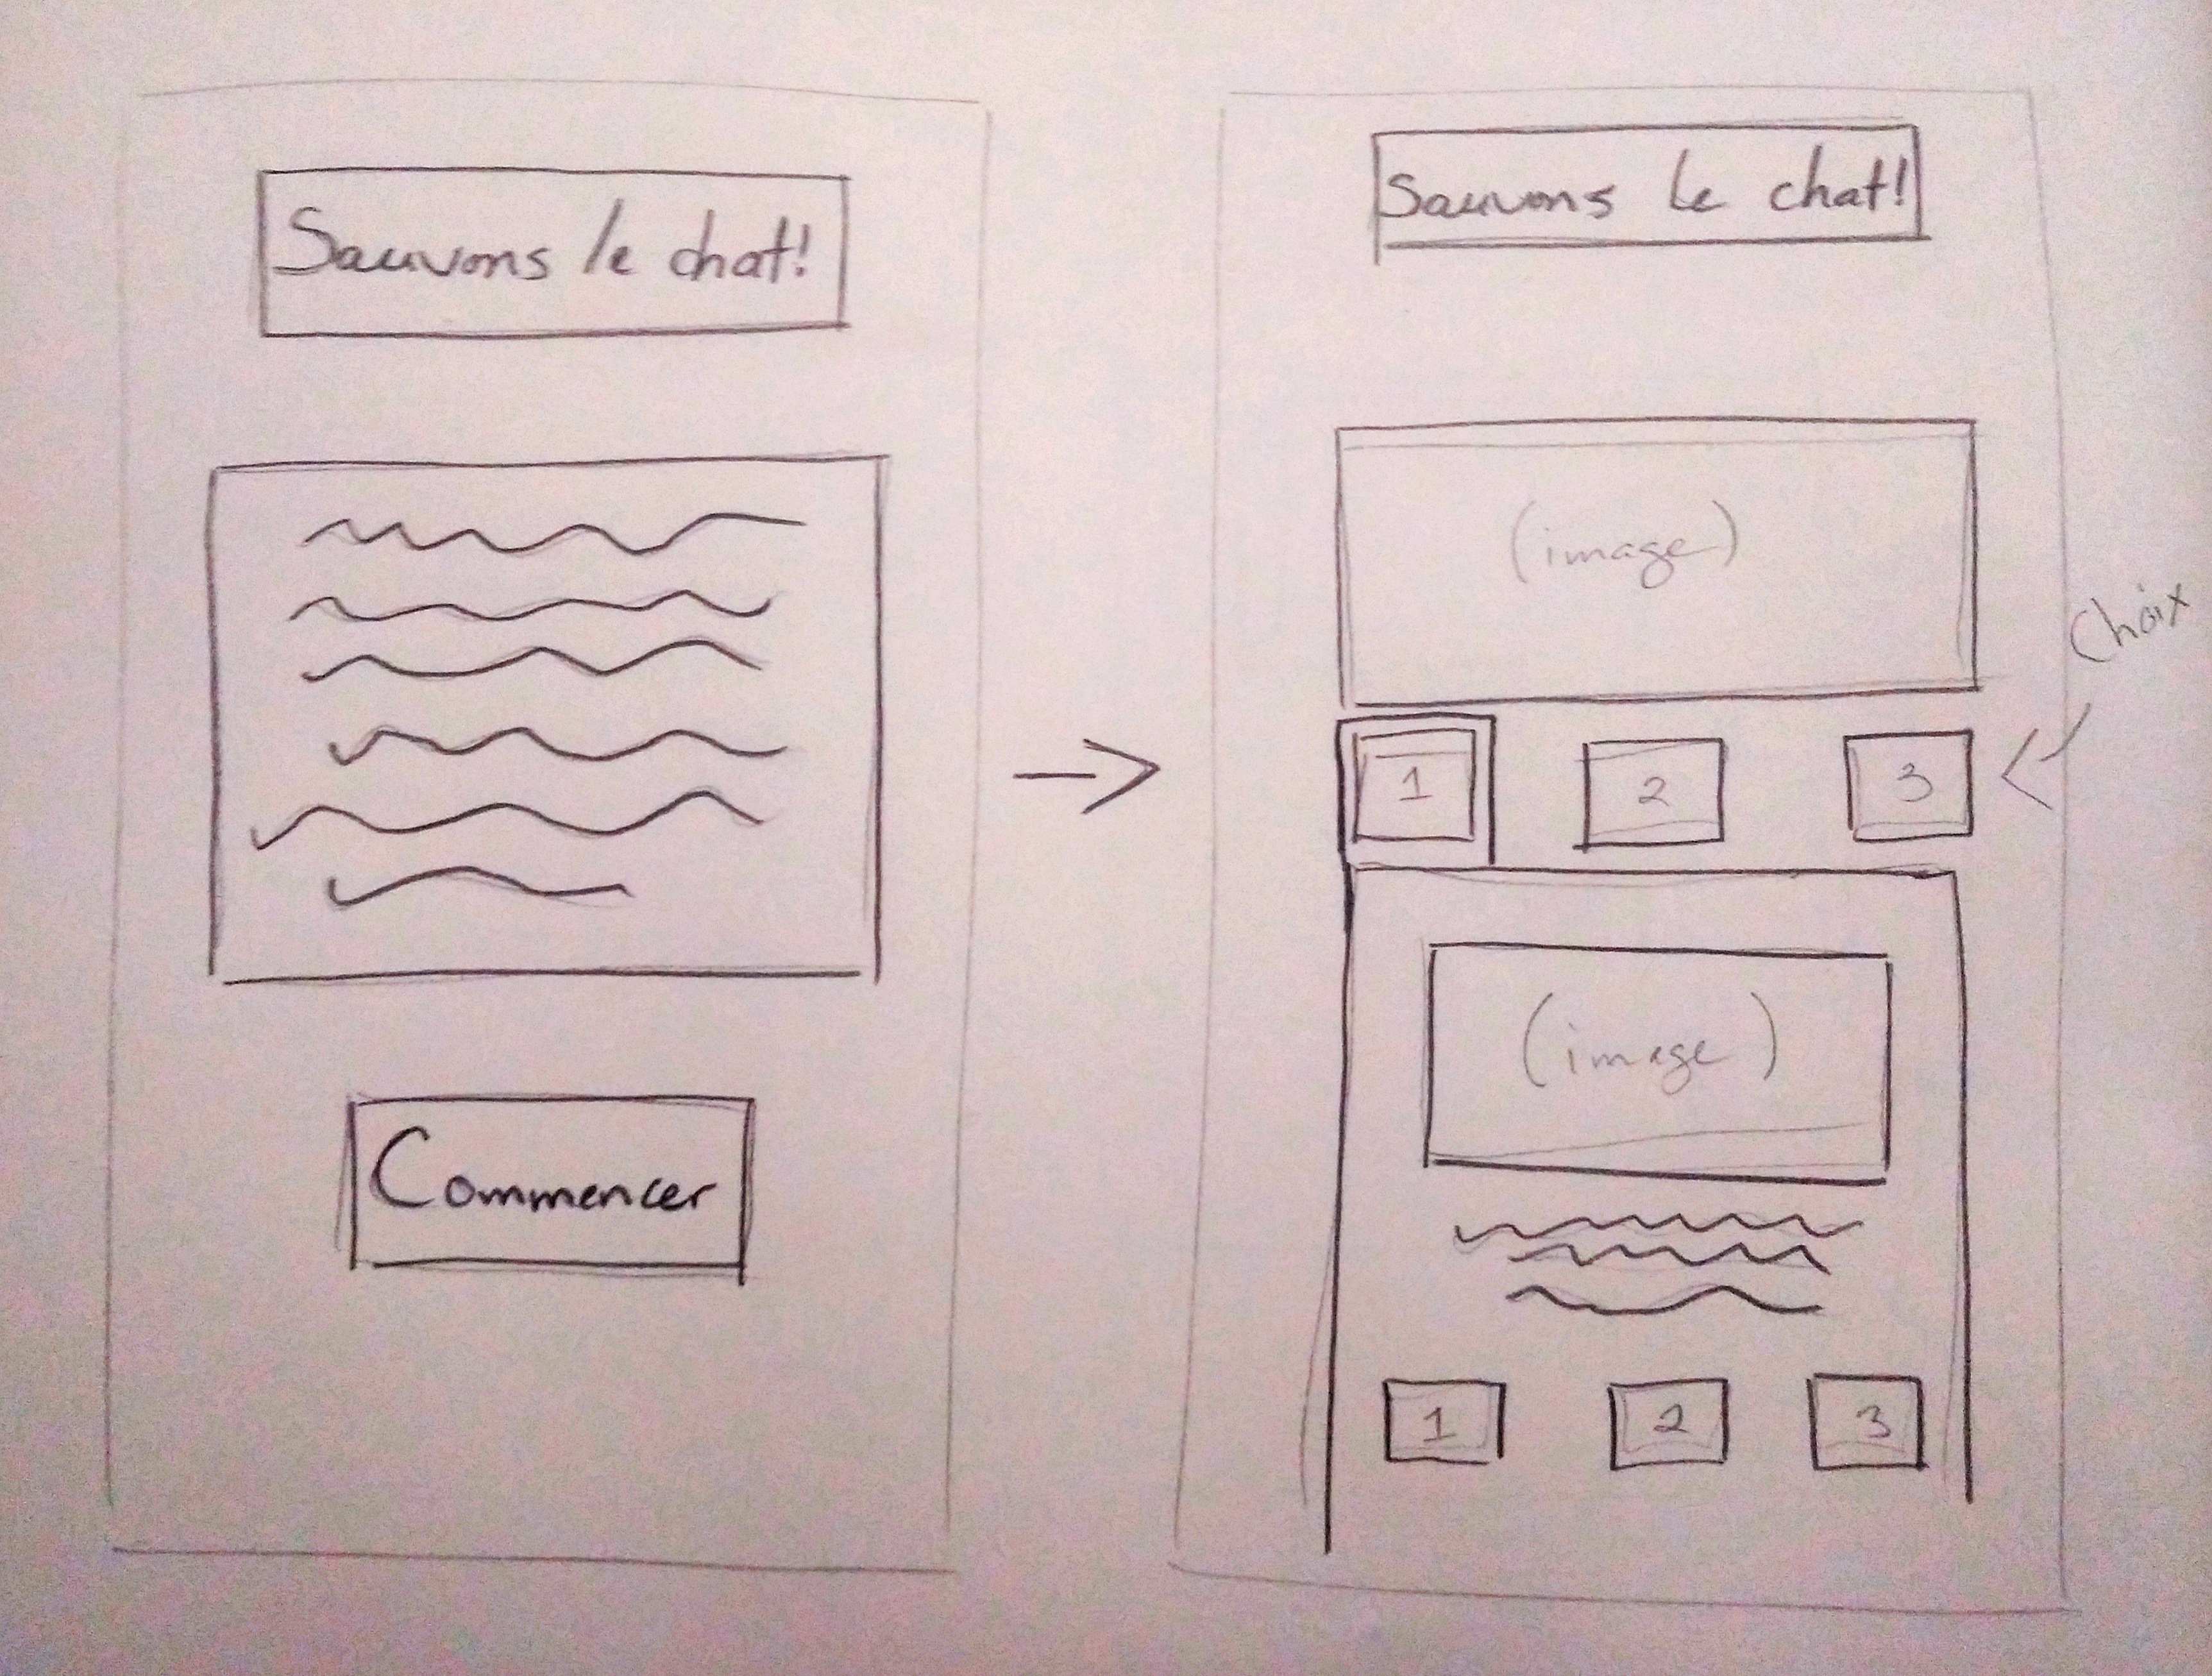 Sauvons le chat!
Commencer
Sauvons le chat!
(image)
Choix
1 2 3
(image)
1 2 3